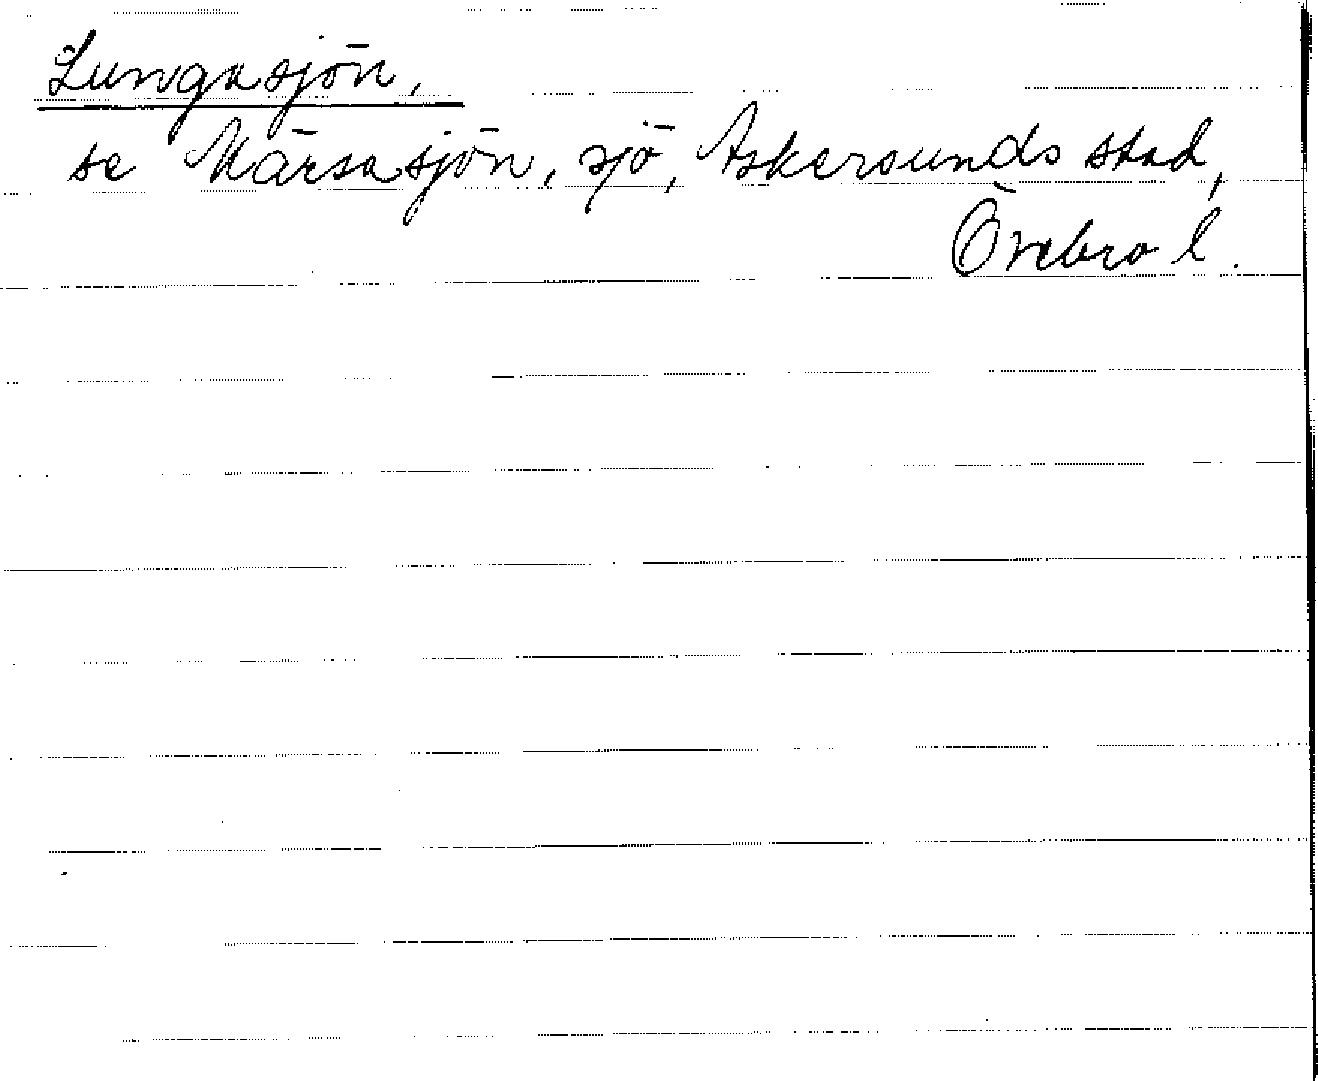 Lungasjön,
se Kärsasjön, sjö, Askersunds stad,
Örebro l.